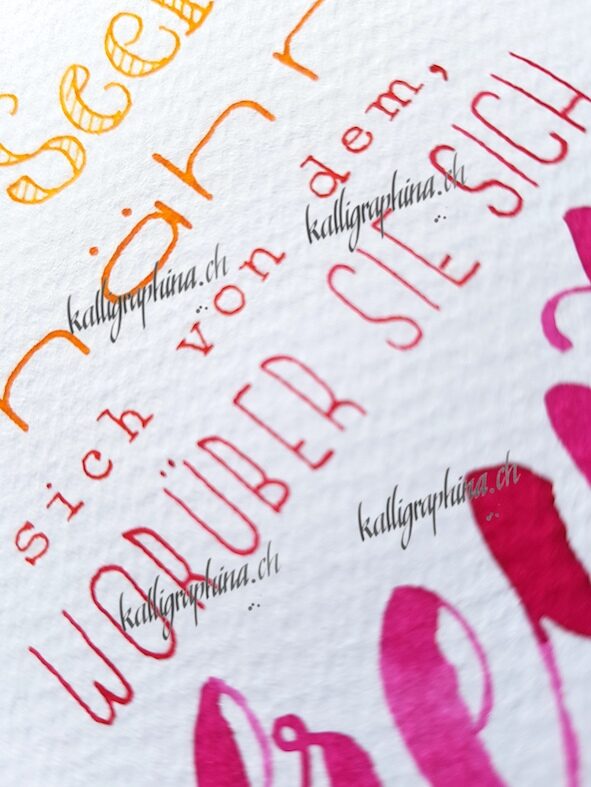 Seel
nähr
sich von dem,
WORÜBER SIE SICH
kalligraphina.ch
kalligraphina.ch
kalligraphina.ch
kalligraphina.ch